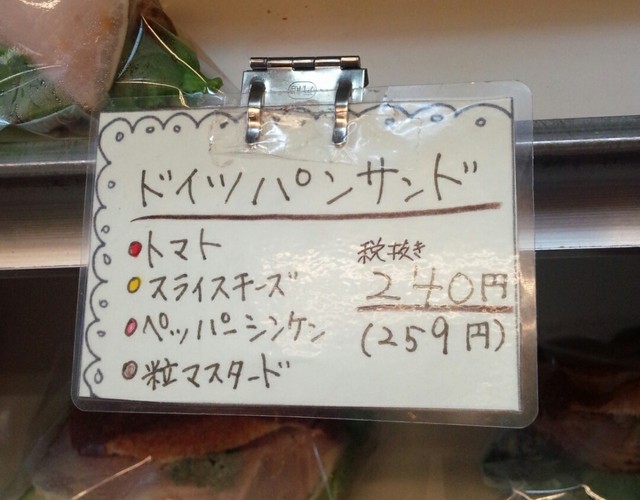 ドイツパンサンド
トマト
スライスチーズ
ペッパーシンケン
粒マスタード
税抜き
240円
(259円)